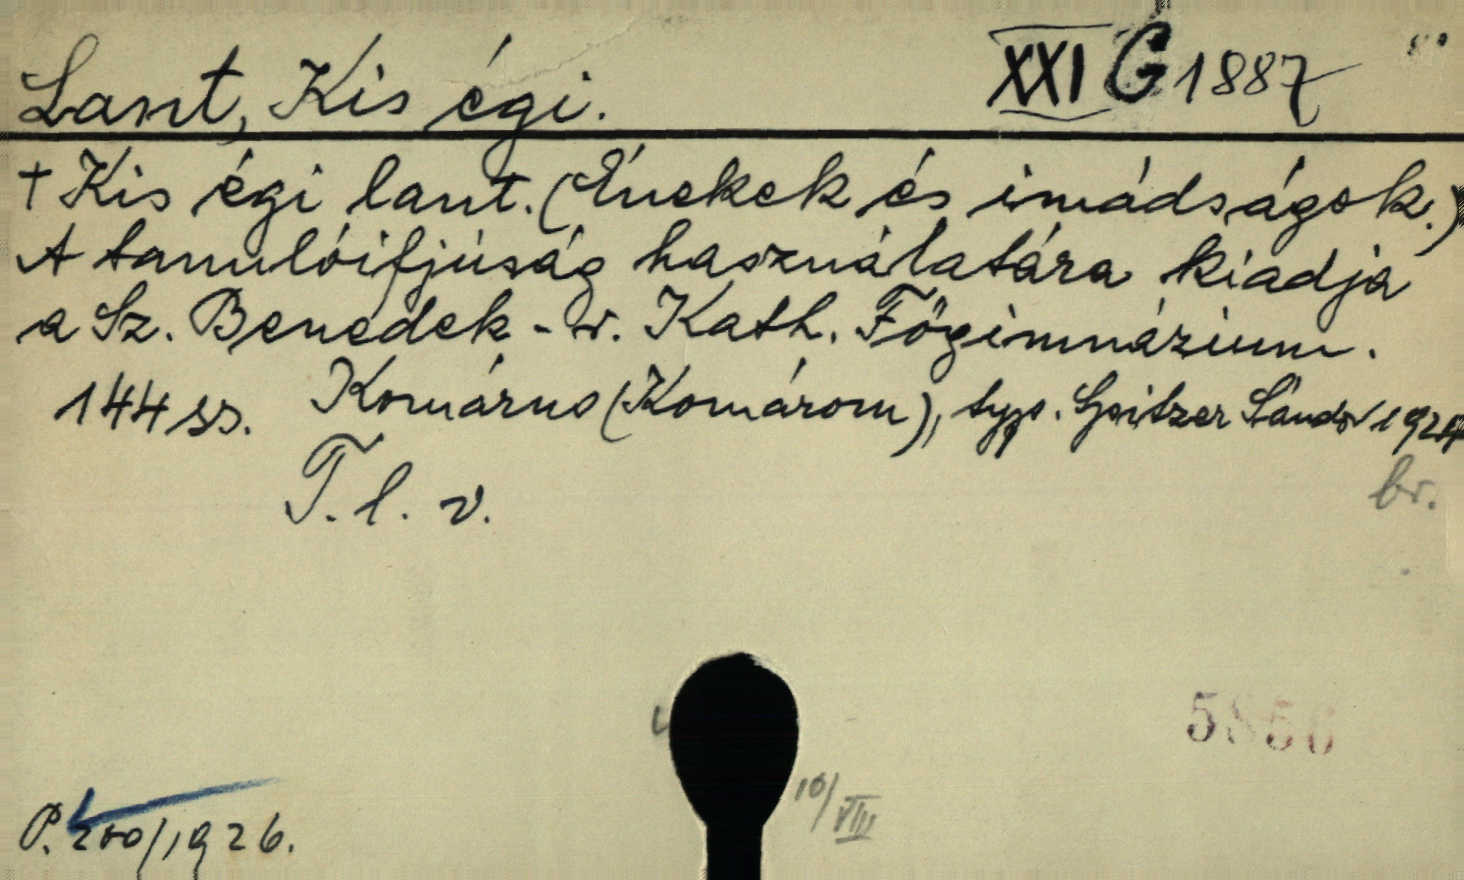 Lant, Kis égi.
XXI G 1887
+ Kis égi lant. (Énekek és imádságok.)
A tanulóifjúság használatára kiadja
a Sz. Benedek-r. Kath. Főgimnázium.
144 ss. Komárno (Komárom), typ. Spitzer Sándor 1924
T. l. v.
br.
5856
10/VIII
P. 200/1926.